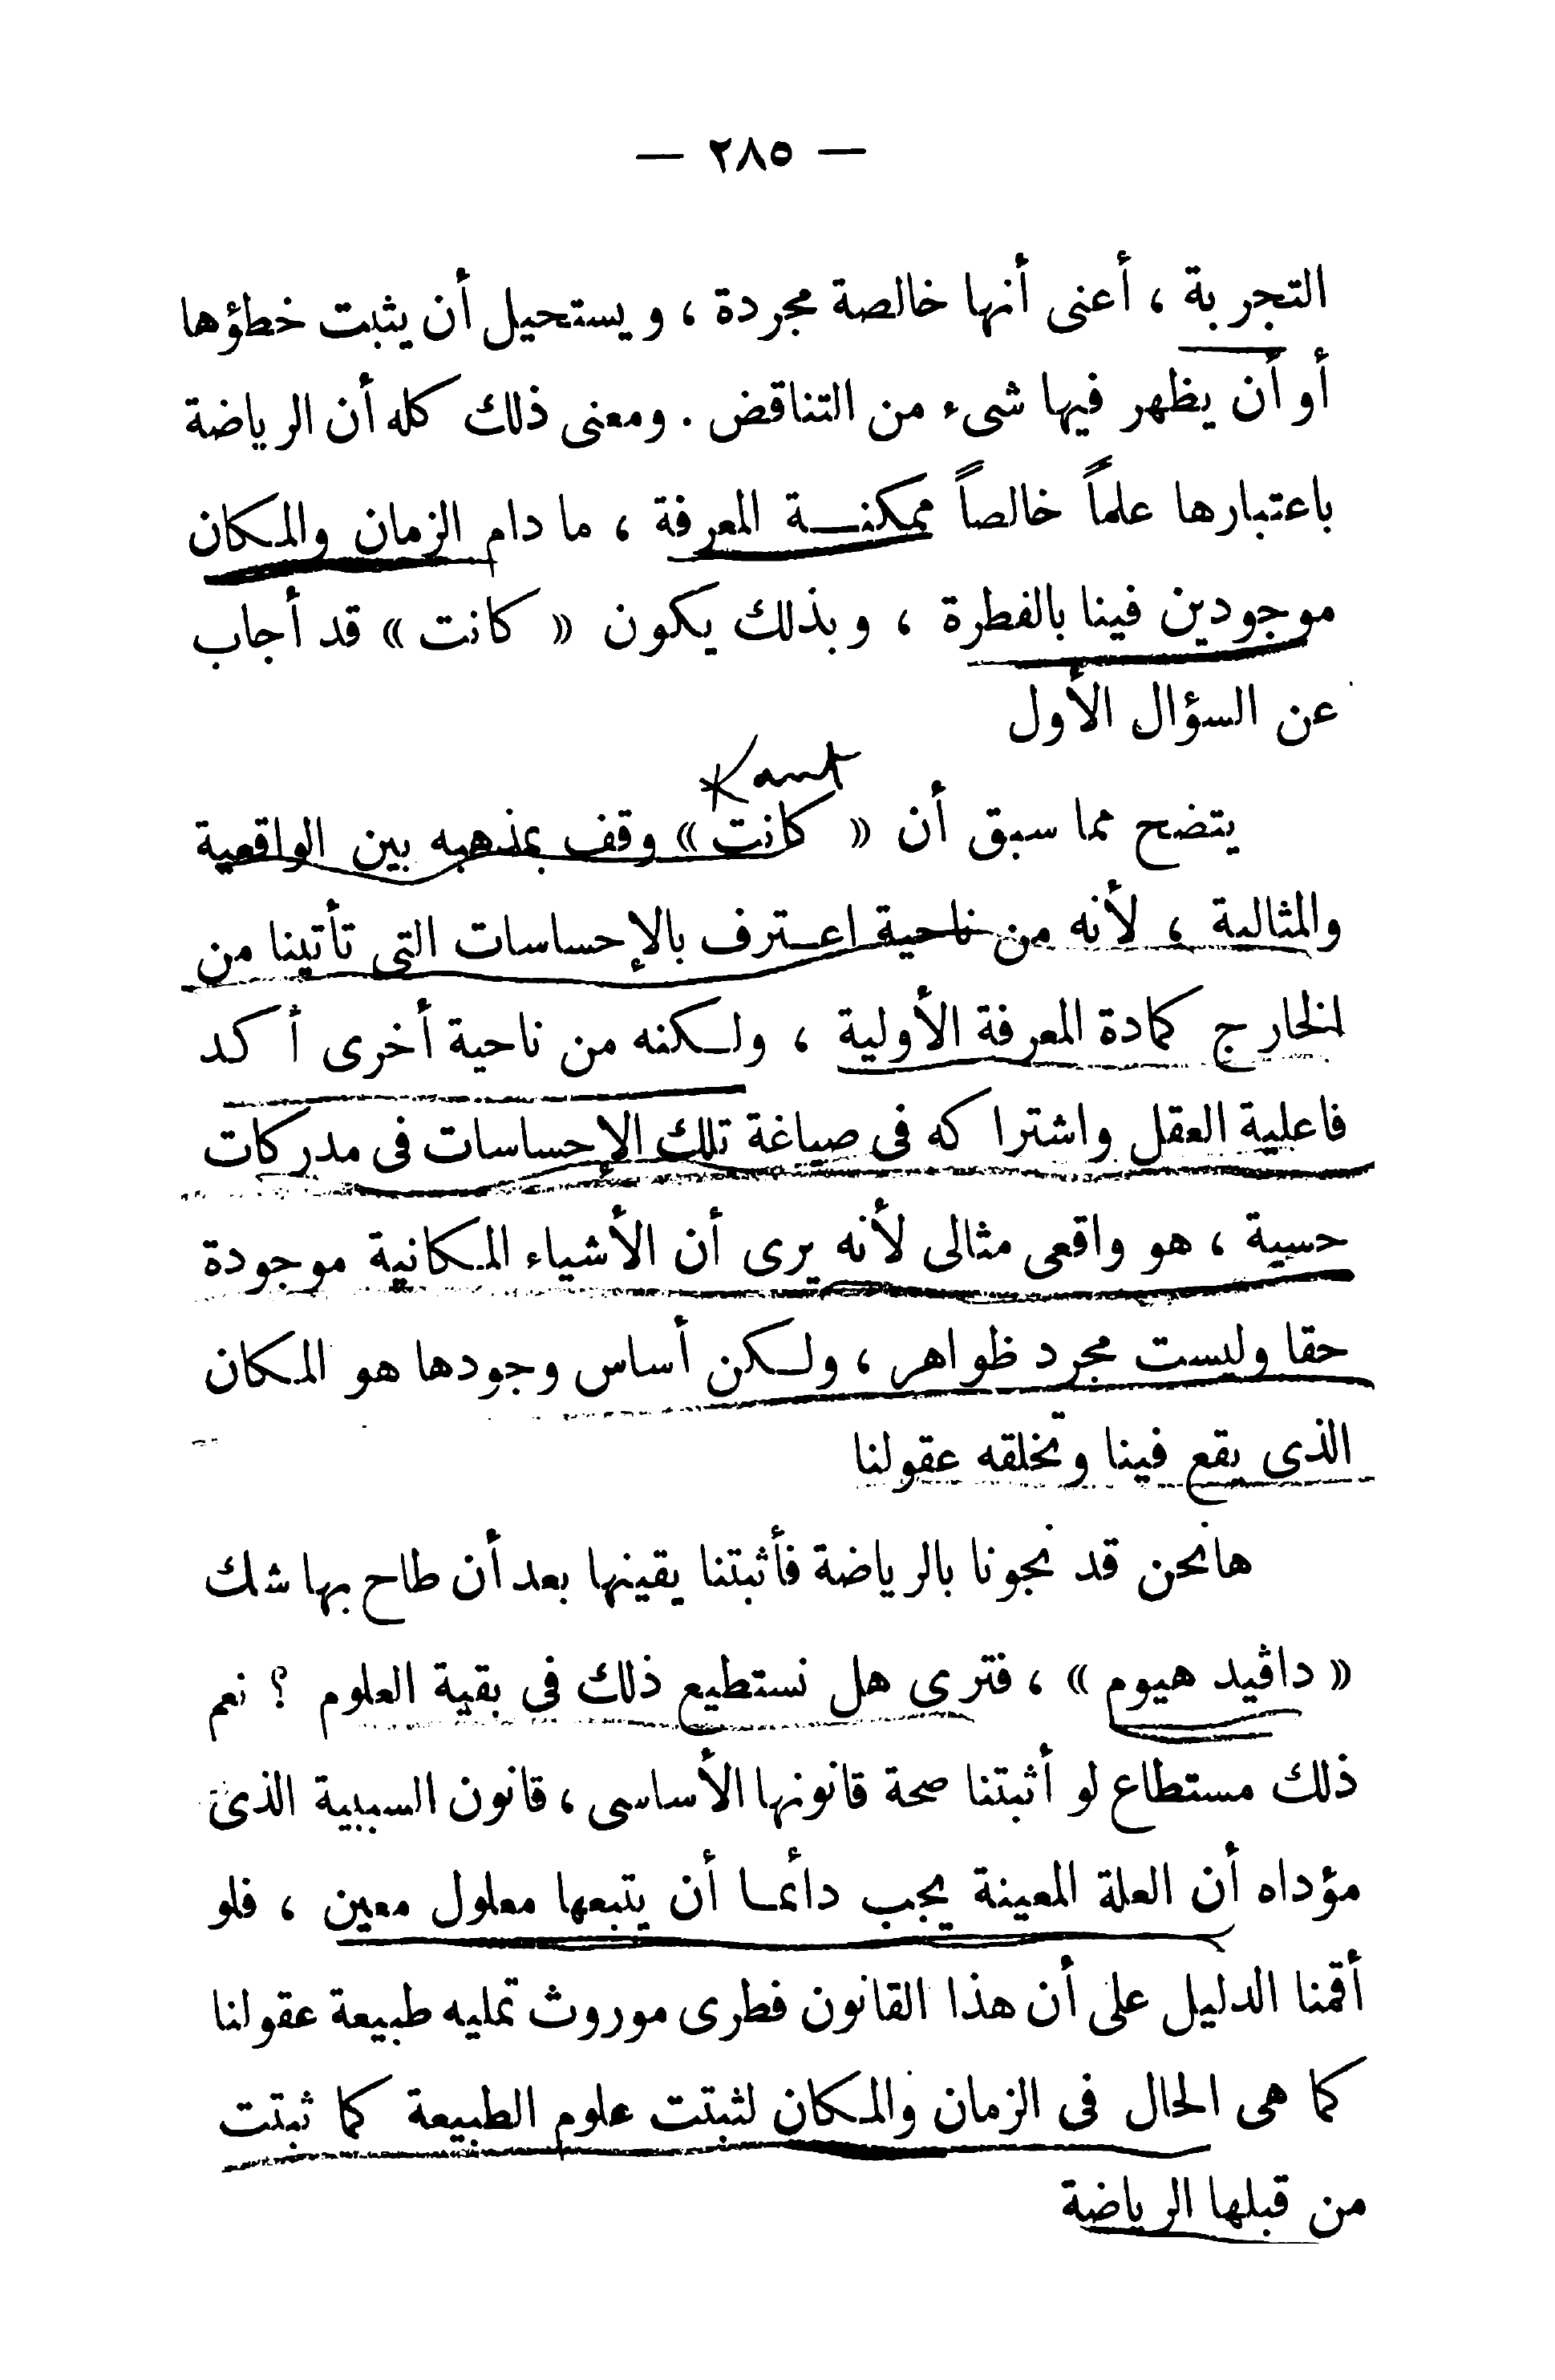 — ٢٨٥ —
التجربة ، أعنى أنها خالصة مجردة ، ويستحيل أن يثبت خطؤها
أو أن يظهر فيها شىء من التناقض . ومعنى ذلك كله أن الرياضة
باعتبارها علماً خالصاً ممكنة المعرفة ، ما دام الزمان والمكان
موجودين فينا بالفطرة ، وبذلك يكون « كانت » قد أجاب
عن السؤال الأول
Kant
يتضح مما سبق أن « كانت » وقف بمذهبه بين الواقعية
والمثالية ، لأنه من ناحية اعترف بالإحساسات التى تأتينا من
الخارج كمادة المعرفة الأولية ، ولكنه من ناحية أخرى أكد
فاعلية العقل واشتراكه فى صياغة تلك الإحساسات فى مدركات
حسية ، هو واقعى مثالى لأنه يرى أن الأشياء المكانية موجودة
حقا وليست مجرد ظواهر ، ولكن أساس وجودها هو المكان
الذى يقع فينا وتخلقه عقولنا
هانحن قد نجونا بالرياضة فأثبتنا يقينها بعد أن طاح بها شك
« داڤيد هيوم » ، فترى هل نستطيع ذلك فى بقية العلوم ؟ نعم
ذلك مستطاع لو أثبتنا صحة قانونها الأساسى ، قانون السببية الذى
مؤداه أن العلة المعينة يجب دائما أن يتبعها معلول معين ، فلو
أقمنا الدليل على أن هذا القانون فطرى موروث تمليه طبيعة عقولنا
كما هى الحال فى الزمان والمكان لثبتت علوم الطبيعة كما ثبتت
من قبلها الرياضة